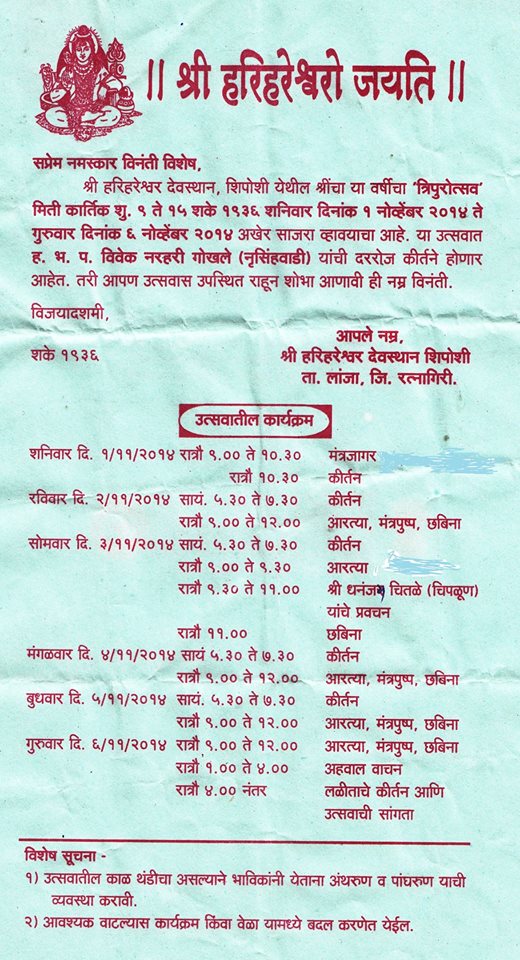 || श्री हरिहरेश्वरो जयति ||
सप्रेम नमस्कार विनंती विशेष,
श्री हरिहरेश्वर देवस्थान, शिपोशी येथील श्रींचा या वर्षीचा 'त्रिपुरोत्सव'
मिती कार्तिक शु. ९ ते १५ शके १९३६ शनिवार दिनांक १ नोव्हेंबर २०१४ ते
गुरुवार दिनांक ६ नोव्हेंबर २०१४ अखेर साजरा व्हावयाचा आहे. या उत्सवात
ह. भ. प. विवेक नरहरी गोखले (नृसिंहवाडी) यांची दररोज कीर्तने होणार
आहेत. तरी आपण उत्सवास उपस्थित राहून शोभा आणावी ही नम्र विनंती.
विजयादशमी,
शके १९३६
आपले नम्र,
श्री हरिहरेश्वर देवस्थान शिपोशी
ता. लांजा, जि. रत्नागिरी.
उत्सवातील कार्यक्रम
शनिवार दि. १/११/२०१४ रात्रौ ९.०० ते १०.३० मंत्रजागर
रात्रौ १०.३० कीर्तन
रविवार दि. २/११/२०१४ सायं. ५.३० ते ७.३० कीर्तन
रात्रौ ९.०० ते १२.०० आरत्या, मंत्रपुष्प, छबिना
सोमवार दि. ३/११/२०१४ सायं. ५.३० ते ७.३० कीर्तन
रात्रौ ९.०० ते ९.३० आरत्या
रात्रौ ९.३० ते ११.०० श्री धनंजय चितळे (चिपळूण)
यांचे प्रवचन
रात्रौ ११.०० छबिना
मंगळवार दि. ४/११/२०१४ सायं ५.३० ते ७.३० कीर्तन
रात्रौ ९.०० ते १२.०० आरत्या, मंत्रपुष्प, छबिना
बुधवार दि. ५/११/२०१४ सायं. ५.३० ते ७.३० कीर्तन
रात्रौ ९.०० ते १२.०० आरत्या, मंत्रपुष्प, छबिना
गुरुवार दि. ६/११/२०१४ रात्रौ ९.०० ते १२.०० आरत्या, मंत्रपुष्प, छबिना
रात्रौ १.०० ते ४.०० अहवाल वाचन
रात्रौ ४.०० नंतर लळीताचे कीर्तन आणि
उत्सवाची सांगता
विशेष सूचना -
१) उत्सवातील काळ थंडीचा असल्याने भाविकांनी येताना अंथरुण व पांघरुण याची
व्यवस्था करावी.
२) आवश्यक वाटल्यास कार्यक्रम किंवा वेळा यामध्ये बदल करणेत येईल.